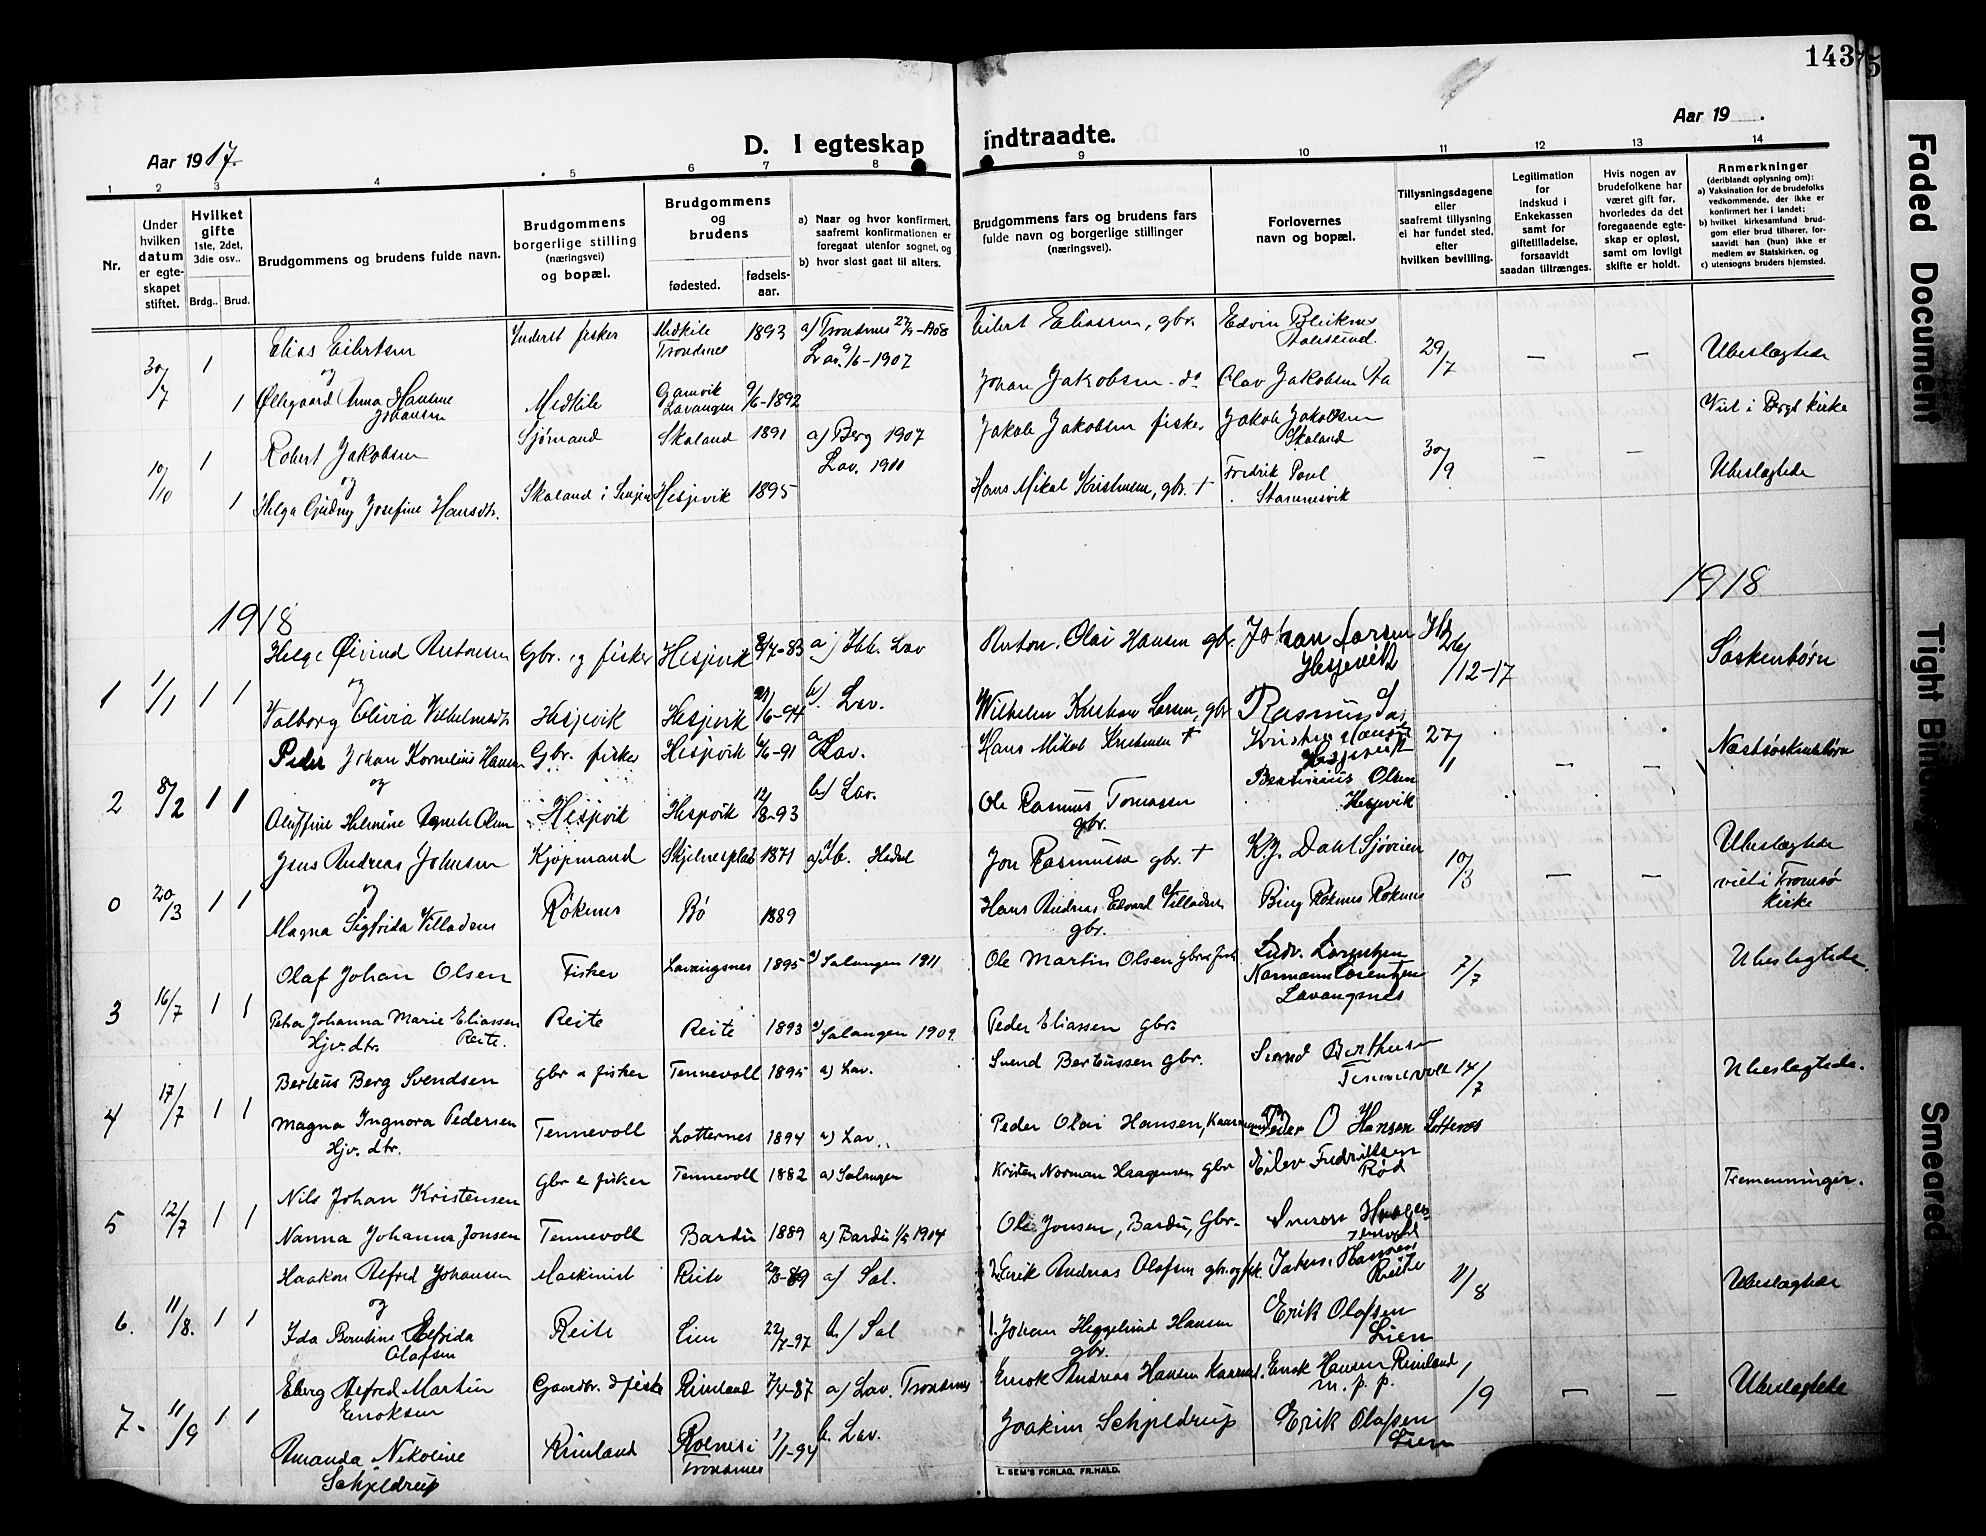 143
Aar 1917.
D. I egteskap indtraadte.
Aar 19
1 2 3 4 5 6 7 8 9 10 11 12 13 14
Nr.
Under hvilken datum er egteskapet stiftet.
Hvilket gifte 1ste, 2det, 3die osv..
Brdg.. Brud.
Brudgommens og brudens fulde navn.
Brudgommens borgerlige stilling (næringsvei) og bopæl.
Brudgommens og brudens
fødested.
fødsels-aar.
a) Naar og hvor konfirmert, saafremt konfirmationen er foregaat utenfor sognet, og
b) hvor sidst gaat til alters.
Brudgommens fars og brudens fars fulde navn og borgerlige stillinger (næringsvei).
Forlovernes navn og bopæl.
Tillysningsdagene eller saafremt tillysning ei har fundet sted, efter hvilken bevilling.
Legitimation for indskud i Enkekassen samt for giftetilladelse, forsaavidt saadan tiltrænges.
Hvis nogen av brudefolkene har været gift før, hvorledes da det foregaaende egteskap er opløst, samt om lovligt skifte er holdt.
Anmerkninger (deriblandt oplysning om):
a) Vaksination for de brudefolks vedkommende, der ikke er konfirmert her i landet;
b) hvilket kirkesamfund brudgom eller brud tilhører, forsaavidt han (hun) ikke er medlem av Statskirken, og
c) utensogns bruders hjemsted.
30/7 1 Elias Eilertsen fisker Medkile Trondenes 1893 a) Trondenes 27/9-1908 Eilert Eliassen, gbr. Edvin 29/7 — — Ubeslægtede
og Lav. 9/6-1907
1 Ølegaard Anna Hansine Johansen Medkile Gamvik Lavangen 9/6-1892 Johan Jakobsen do Olav Jakobsen Viet i Bergs kirke
10/10 1 Robert Jakobsen Sjømand Skaland 1891 a) Berg 1907 Jakob Jakobsen fisker Jakob Jakobsen Skaland 30/9 — —
og Lav. 1911
1 Helga Gudny Josefine Hansdtr. Skaland i Senjen Hesjevik 1895 Hans Mikal Kristensen, gbr. + Fredrik Stammesvik Ubeslægtede
1918 1918
1 1/1 1 1 Helge Øivind Antonsen Gbr. og fisker Hesjevik 8/7-83 a) Ibb. Lav Anton Olai Hansen gbr. Johan Larsen Hesjevik 26/12-17 Søskenbørn
og
Valborg Olivia Vilhelmsdtr Hesjevik Hesjevik /6-94 b) Lav. Wilhelm Kristian Larsen, gbr Rasmus
2 8/2 1 1 Peder Johan Kornelius Hansen Gbr. fisker Hesjevik 6/6-91 a) Lav. Hans Mikal Kristensen + Kristen Hansen Hesjevik 27/1 — — Næstsøskenbørn
og
Oluffine Helmine Agnete Olsen Hesjevik Hesjevik 12/8-93 b) Lav. Ole Rasmus Tomassen gbr. Olsen Hesjevik
0 20/3 1 1 Jens Andreas Johnsen Kjøpmand Skjelnesplads 1871 a) Ib. Hadsel Jon Rasmussen gbr. + K.J. Dahl Sjøveien 10/3 — — Ubeslægtede
og viet i Tromsø kirke
Magna Sigfrida Villadsen Røkenes Bø 1889 Hans Andreas Edvard Villadsen gbr. Bing Røkenes Røkenes
3 16/7 1 1 Olaf Johan Olsen Fisker Lavangsnes 1895 a) Salangen 1911 Ole Martin Olsen gbr og fisk. Ludv. Lorentzen 7/7 Ubeslegtede.
Normann Lorentzen Lavangsnes
Petra Johanna Marie Eliassen Hjv. dtr. Reite. Reite Reite 1893 a) Salangen 1909. Peder Eliassen gbr.
4 17/7 1 1 Berteus Berg Svendsen Gbr & fisker Tennevoll 1895 a) Lav. Svend Berteussen gbr. Svend Berthusen Tennevoll 14/7 Ubeslegtede.
Magna Ingnora Pedersen Hjv. dtr. Tennevoll Lotternes 1894 a) Lav. Peder Olai Hansen, Peder O Hansen Lotternes
5 12/7 1 1 Nils Johan Kristensen Gbr & fisker Tennevoll 1882 a) Salangen Kristen Norman Haagensen gbr Eilev Fredriksen Rød Tremenninger.
Nanna Johanna Jonsen Tennevoll Bardu 1889 a) Bardu 1904 Ole Jonsen, Bardu, Gbr.
6. 11/8. 1 1 Haakon Alfred Johansen Maskinist Reite -89 a) Sal. 2. Erik Andreas Olafsen gbr. og fisk. Hansen Reite 11/8 Ubeslægtede
og
Ida Berntine Elfrida Olafsen Reite Lien 22/7-97 b) Sal 1. Johan Heggelund Hansen gbr. Erik Olafsen Lien
7- 11/9 1 1 Eberg Alfred Martin Enoksen Gaardbr. & fisker Rimland 7/4-87 a) Lav. Trondenes Enok Andreas Hansen Enok Hansen Rimland m.p.p. 1/9 — — Ubeslægtede
Amanda Nikoline Schjeldrup Rimland Rolnes i Trondenes 1/1-94 b. Lav. Joakim Schjeldrup Erik Olafsen Lien
L. SEM'S FORLAG, FR.HALD.
Faded Document
Tight Bin
Smeared